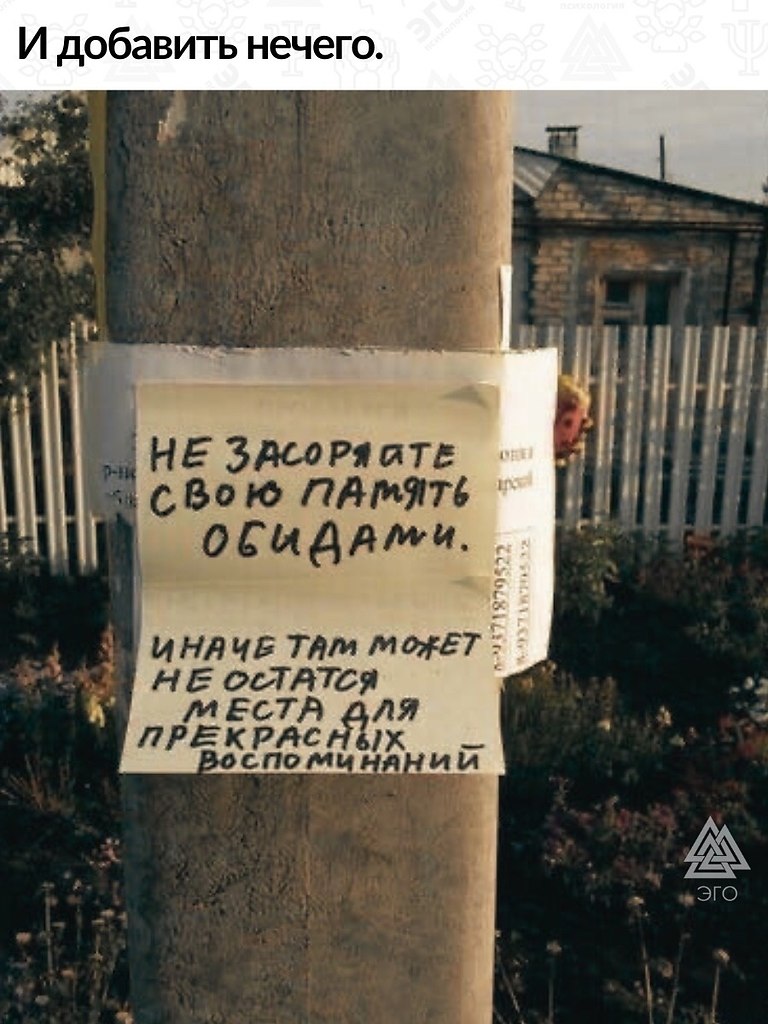 И добавить нечего.
НЕ ЗАСОРЯЙТЕ
СВОЮ ПАМЯТЬ
ОБИДАМИ.
ИНАЧЕ ТАМ МОЖЕТ
НЕ ОСТАТСЯ
МЕСТА ДЛЯ
ПРЕКРАСНЫХ
ВОСПОМИНАНИЙ
ЭГО